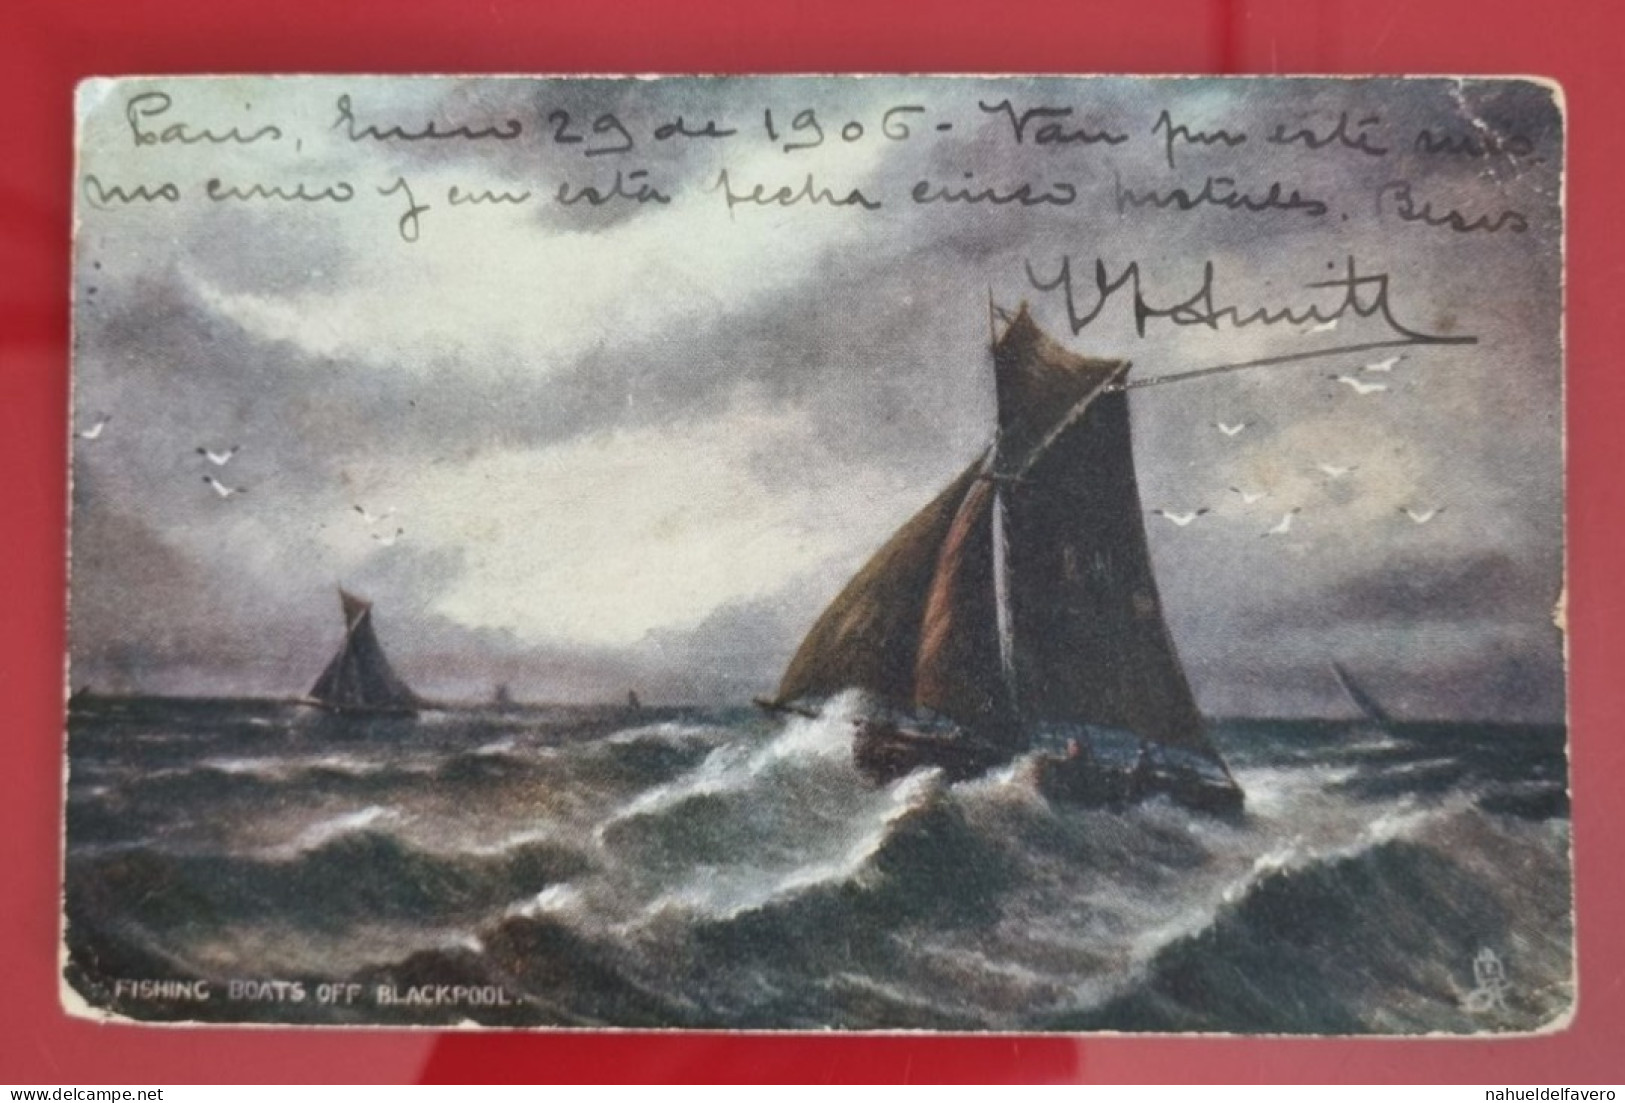 Paris, Enero 29 de 1906 - Van por este mis
mo correo y en esta fecha cinco postales. Besos
Smith
FISHING BOATS OFF BLACKPOOL.
www.delcampe.net
nahueldelfavero